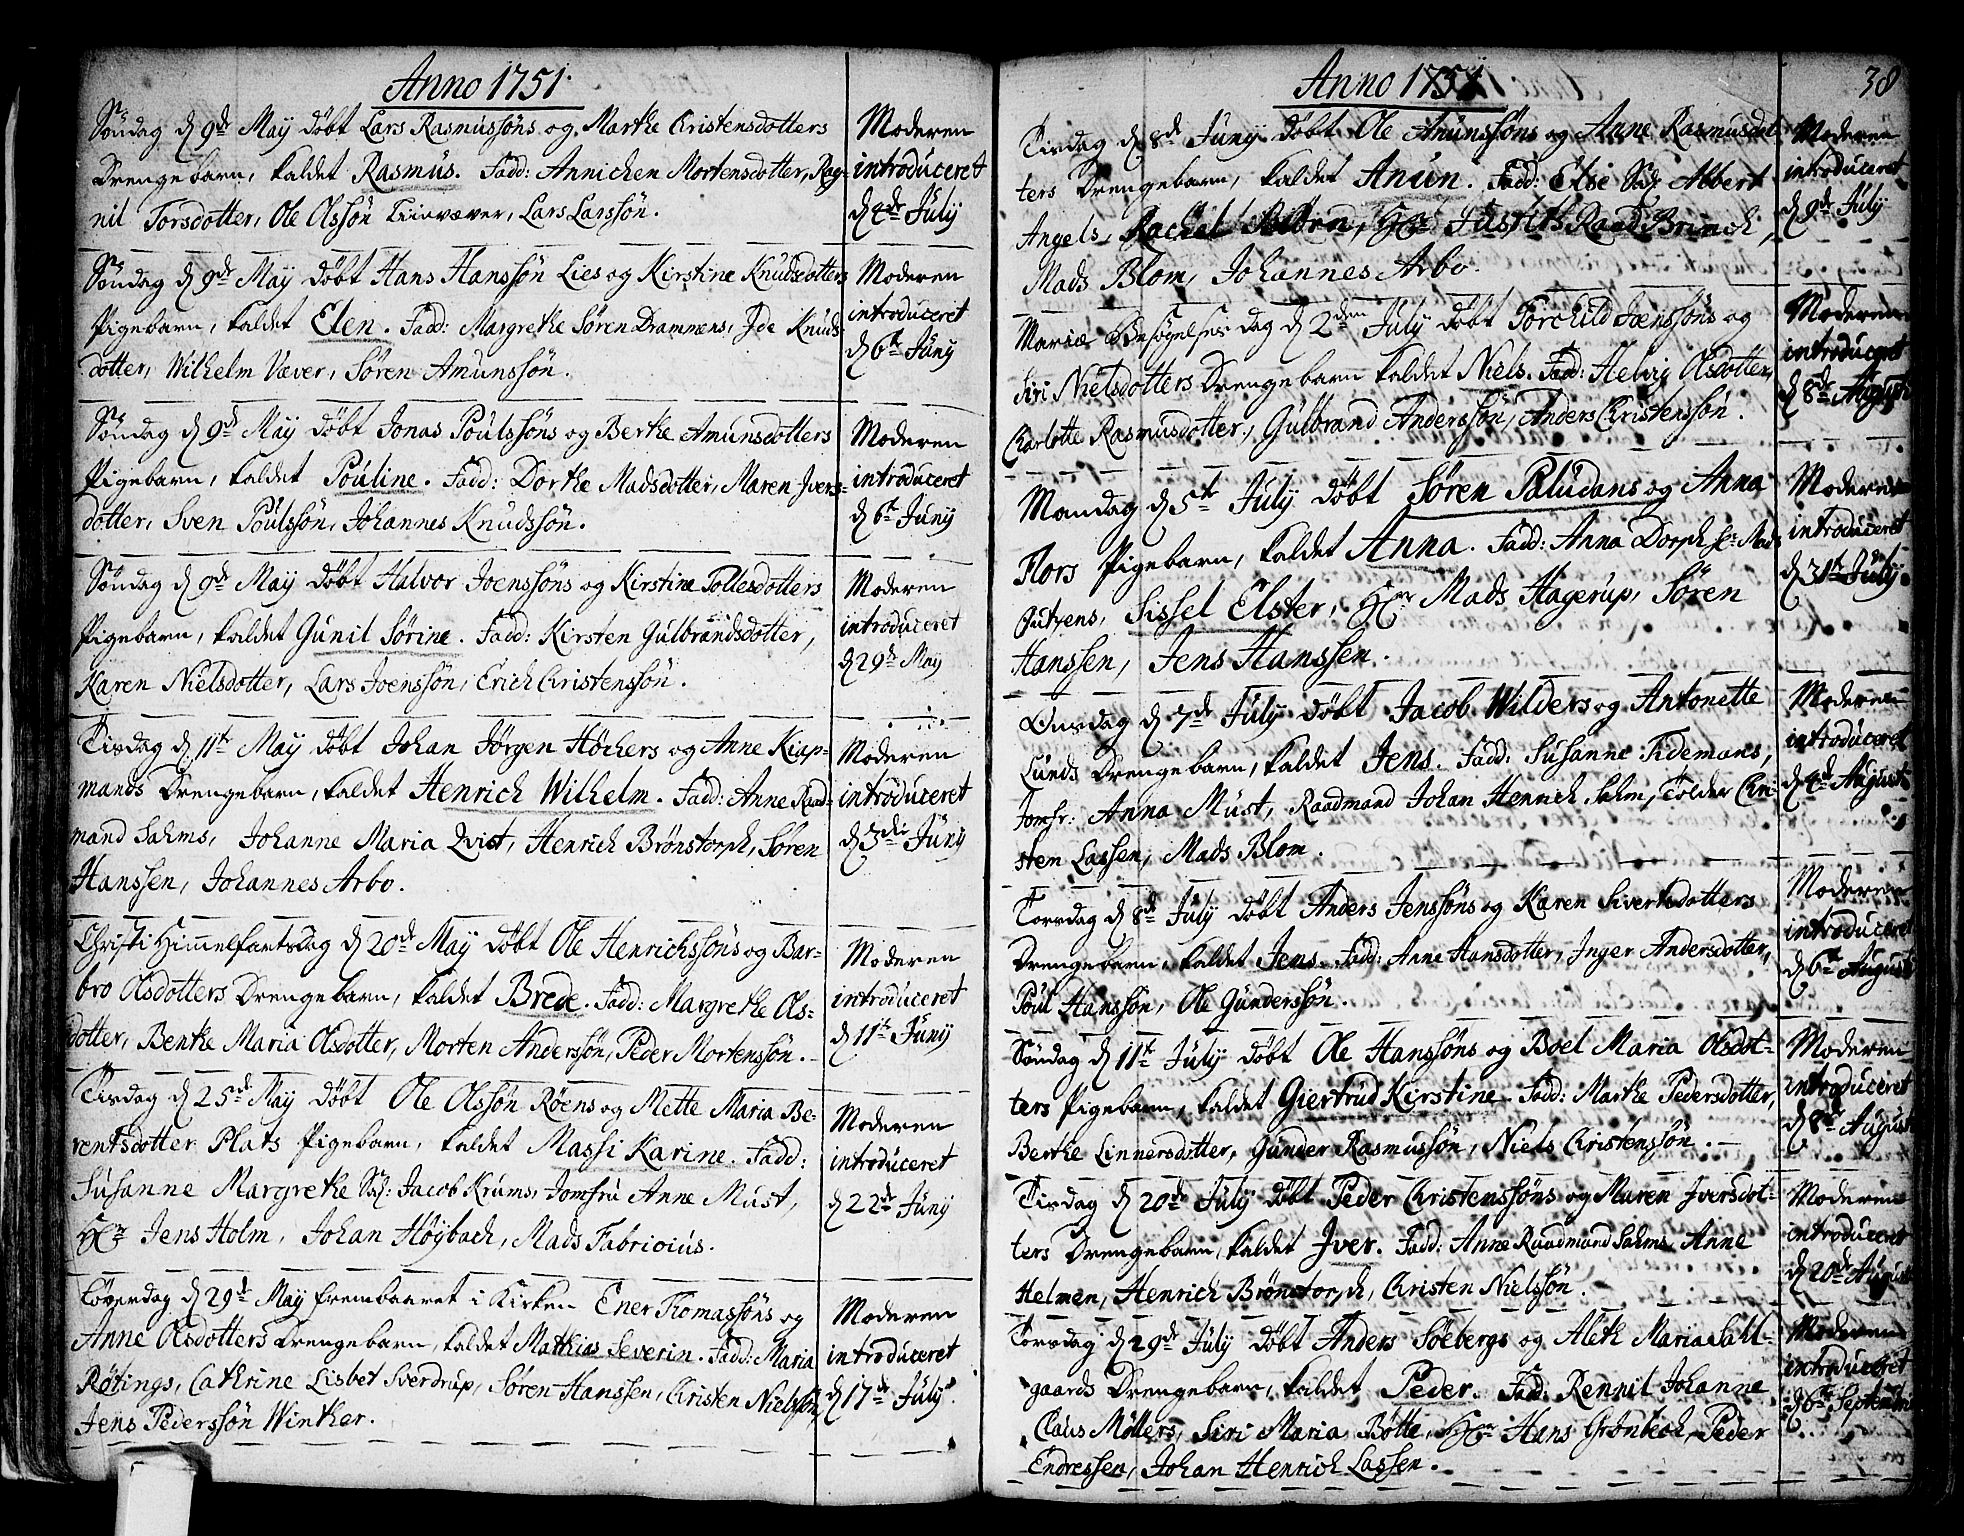 Anno 1751.
Søndag d 9de May døbt Lars Rasmussøns og Marthe Christensdotters
Drengebarn, kaldet Rasmus. Fadd: Annichen Mortensdotter, Rag-
nil Torsdotter, Ole Olssøn Linvæver, Lars Larssøn.
Moderen
introduceret
d 4de July
Søndag d 9de May døbt Hans Hanssøn Lies og Kirstine Knudsdotters
Pigebarn, kaldet Elen. Fadd: Margrethe Søren Drammens, Ide Knuds-
dotter, Wilhelm Væver, Søren Amunssøn.
Moderen
introduceret
d 6te Juny
Søndag d 9de May døbt Jonas Poulssøns og Berthe Amunsdotters
Pigebarn, kaldet Pouline. Fadd: Dorthe Madsdotter, Maren Ivers-
dotter, Sven Poulssøn, Johannes Knudssøn.
Moderen
introduceret
d 6te Juny
Søndag d 9de May døbt Halvor Joenssøns og Kirstine Tollesdotters
Pigebarn, kaldet Gunil Sørine. Fadd: Kirsten Gulbrandsdotter,
Karen Nielsdotter, Lars Joenssøn, Erich Christenssøn.
Moderen
introduceret
d 29de May
Tirsdag d 11te May døbt Johan Jørgen Höchers og Anne Kiap-
mands Drengebarn, kaldet Henrich Wilhelm. Fadd: Anne Raad-
mand Sahms, Johanne Maria Qvist, Henrich Brønstorph, Søren
Hanssen, Johannes Arbo.
Moderen
introduceret
d 3die Juny
Christi Himmelfartsdag d 20de May døbt Ole Henrichssøns og Bar-
bro Olsdotters Drengebarn, kaldet Brede. Fadd: Margrethe Ols-
dotter, Benthe Maria Olsdotter, Morten Anderssøn, Peder Mortenssøn.
Moderen
introduceret
d 11te Juny
Tirsdag d 25de May døbt Ole Olssøn Røens og Mette Maria Be-
rentsdotter Plats Pigebarn, kaldet Massi Karine. Fadd:
Susanne Margrethe Sal: Jacob Krums, Jomfru Anne Must,
Hr Jens Holm, Johan Høybach, Mads Fabricius.
Moderen
introduceret
d 22de Juny
Løverdag d 29de May frembaaret i Kirken Ener Thomassøns og
Anne Olsdotters Drengebarn, kaldet Mathias Severin. Fadd: Maria
Røtings, Cathrine Lisbet Sverdrup, Søren Hanssen, Christen Nielssøn,
Jens Pederssøn Winther.
Moderen
introduceret
d 17de July
38
Anno 1751
Tirsdag d 8de Juny døbt Ole Anunssøns og Anne Rasmusdot-
ters Drengebarn, kaldet Anun. Fadd: Else Sal Albert
Angels, Rachel Bolten, Hr Justits Raad Brinch,
Mads Blom, Johannes Arbo.
Moderen
introduceret
d 9de July
Mariæ Besøgelses dag d 2den July døbt Torchild Joenssøns og
Siri Nielsdotters Drengebarn kaldet Niels. Fadd: Helvig Olsdotter,
Charlotte Rasmusdotter, Gulbrand Anderssøn, Anders Christenssøn.
Moderen
introduceret
d 8de August
Mandag d 5te July døbt Søren Paludans og Anna
Flors Pigebarn, kaldet Anna. Fadd: Anna Dorph Hr Mads
Gutzens, Sissel Elster, Hr Mads Hagerup, Søren
Hanssen, Jens Hanssen.
Moderen
introduceret
d 31te July
Onsdag d 7de July døbt Jacob Wilders og Antonette
Lunds Drengebarn, kaldet Jens. Fadd: Susanne Tidemans,
Jomfr: Anna Must, Raadmand Johan Henrich Sahm, Tolder Chri-
sten Lassen, Mads Blom.
Moderen
introduceret
d 4de August
Torsdag d 8de July døbt Anders Jenssøns og Karen Sivertsdotters
Drengebarn, kaldet Jens. Fadd: Anne Hansdotter, Inger Andersdotter,
Poul Hanssøn, Ole Gunderssøn.
Moderen
introduceret
d 6te August
Søndag d 11te July døbt Ole Hanssøns og Boel Maria Olsdot-
ters Pigebarn, kaldet Giertrud Kirstine. Fadd: Marthe Pedersdotter,
Berthe Linnersdotter, Gunder Rasmussøn, Niels Christenssøn.
Moderen
introduceret
d 8de August
Tirsdag d 20de July døbt Peder Christenssøns og Maren Iversdot-
ters Drengebarn, kaldet Iver. Fadd: Anne Raadmand Sahms, Anne
Helmen, Henrich Brønstorph, Christen Nielssøn.
Moderen
introduceret
d 20de August
Torsdag d 29de July døbt Anders Søebergs og Aleth Maria Dahl-
gaards Drengebarn, kaldet Peder. Fadd: Rennil Johanne
Claus Møllers, Siri Maria Bøtte, Hr Hans Grønbech, Peder
Endressen, Johan Henrich Lassen.
Moderen
introduceret
d 6te Septembr